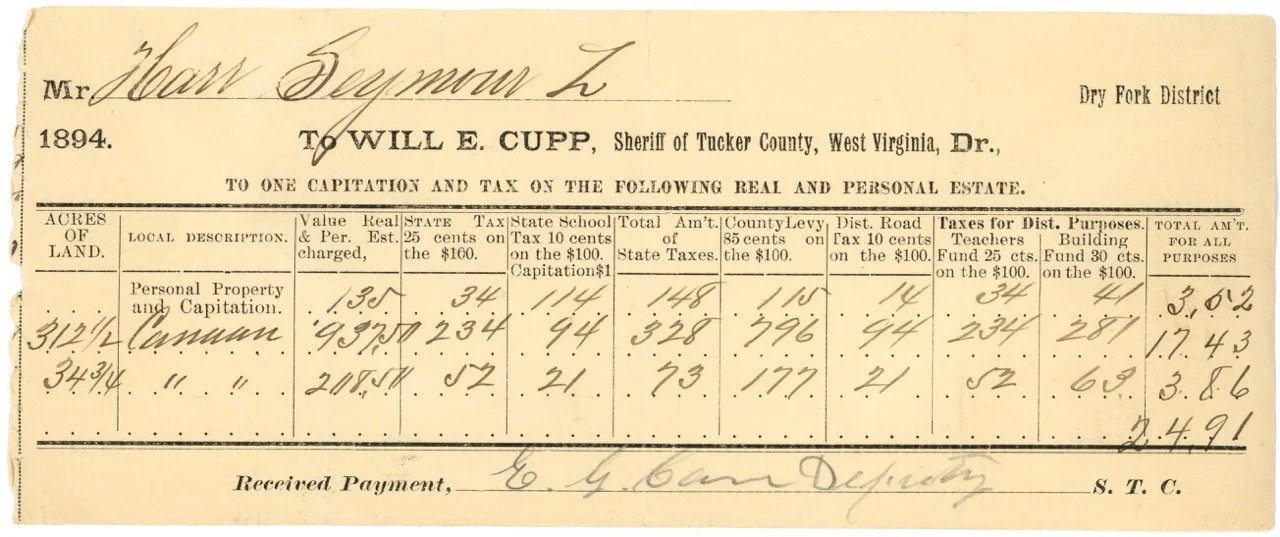 Mr. Harr Seymour L
Dry Fork District
1894. To WILL E. CUPP, Sheriff of Tucker County, West Virginia, Dr.,
TO ONE CAPITATION AND TAX ON THE FOLLOWING REAL AND PERSONAL ESTATE.
ACRES OF LAND. LOCAL DESCRIPTION. Value Real & Per. Est. charged, STATE TAX 25 cents on the $100. State School Tax 10 cents on the $100. Capitation $1 Total Am't. of State Taxes. County Levy 85 cents on the $100. Dist. Road Tax 10 cents on the $100. Taxes for Dist. Purposes. Teachers Fund 25 cts. on the $100. Building Fund 30 cts. on the $100. TOTAL AM'T. FOR ALL PURPOSES
Personal Property and Capitation. 135 34 114 148 115 14 34 41 3,52
312 1/2 Canaan 937,50 234 94 328 796 94 234 281 17 43
34 3/4 " " 208,50 52 21 73 177 21 52 63 3 86
24 91
Received Payment, E. G. Carr Deputy S. T. C.